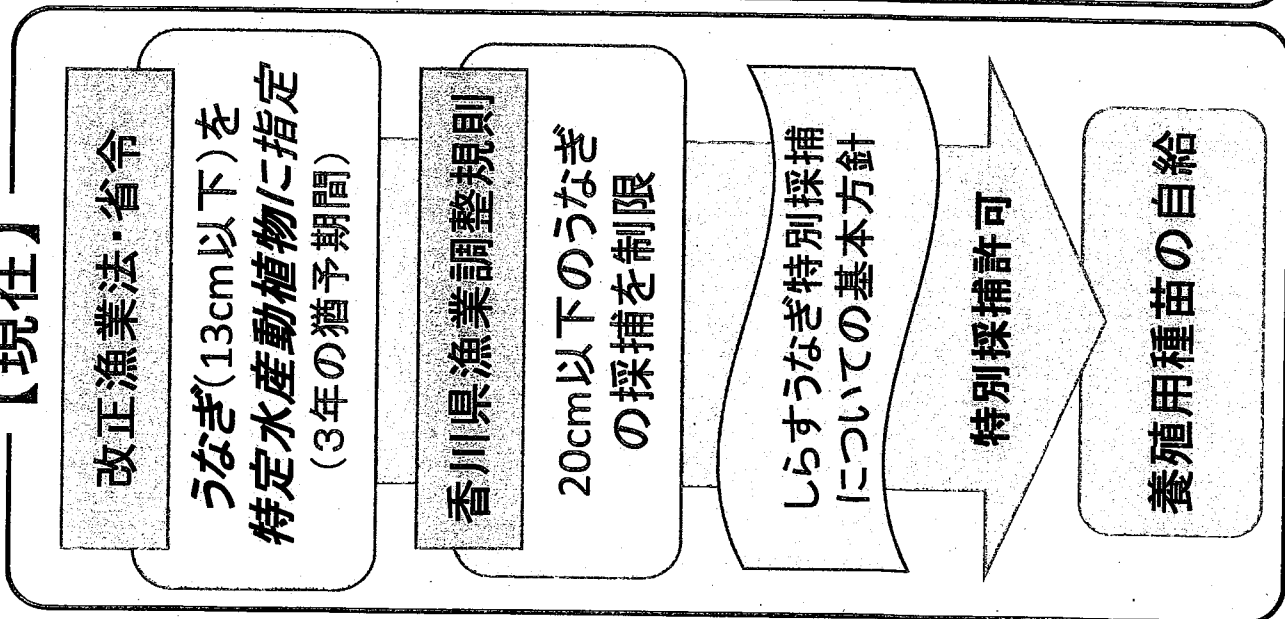 【現在】
改正漁業法・省令
うなぎ(13cm以下)を
特定水産動植物に指定
(3年の猶予期間)
香川県漁業調整規則
20cm以下のうなぎ
の採捕を制限
しらすうなぎ特別採捕
についての基本方針
特別採捕許可
養殖用種苗の自給